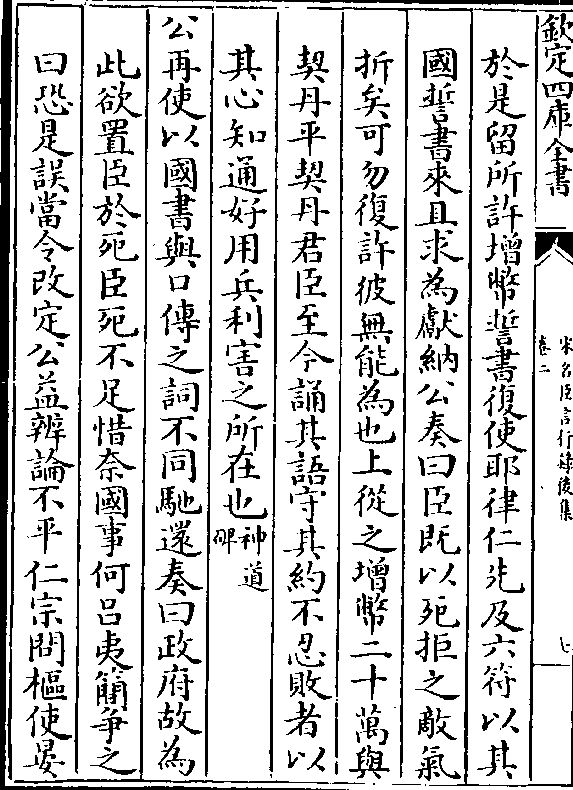 欽定四庫全書
宋名臣言行錄後集
卷二
七
於是留所許增幣誓書復使耶律仁先及六符以其
國誓書來且求為獻納公奏曰臣既以死拒之敵氣
折矣可勿復許彼無能為也上從之增幣二十萬與
契丹平契丹君臣至今誦其語守其約不忍敗者以
其心知通好用兵利害之所在也神道
碑
公再使以國書與口傳之詞不同馳還奏曰政府故為
此欲置臣於死臣死不足惜奈國事何呂夷簡爭之
曰恐是誤當令改定公益辨論不平仁宗問樞使晏